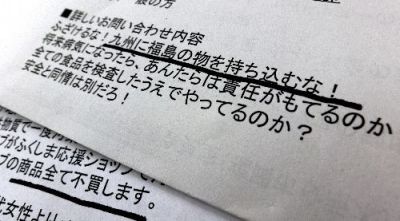 般の方
■詳しいお問い合わせ内容
ふざけるな！九州に福島の物を持ち込むな！
将来病気になったら、あんたらは責任がもてるのか
全ての食品を検査したうえでやってるのか？
安全と同情は別だろ！
プがふくしま応援ショップ
プの商品全て不買します。
代女性より